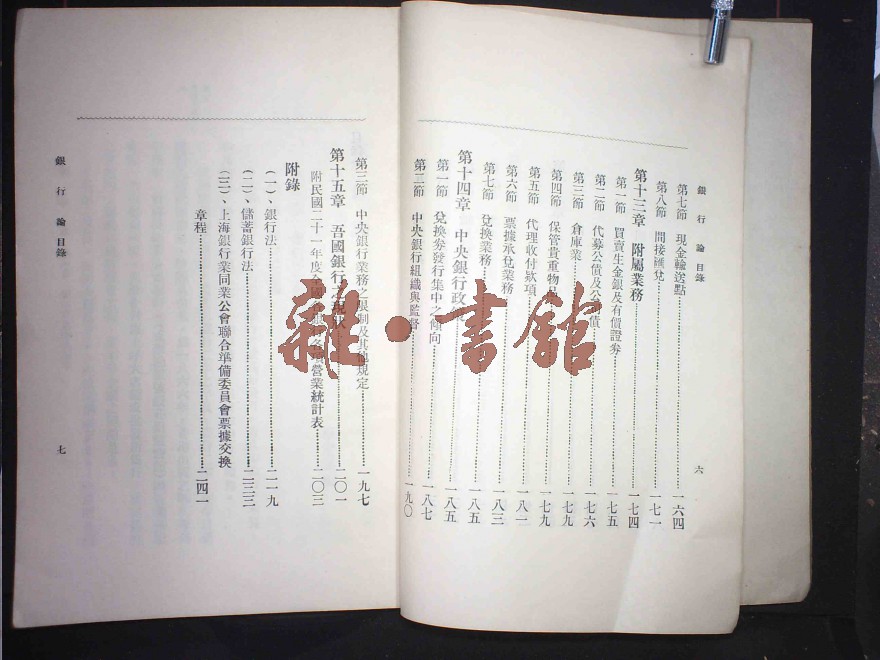 銀行論 目錄
第七節 現金輸送點……一六四
第八節 間接匯兌……一七一
第十三章 附屬業務……一七四
第一節 買賣生金銀及有價證券……一七五
第二節 代募公債及公司債……一七六
第三節 倉庫業……一七九
第四節 保管貴重物品……一七九
第五節 代理收付款項……一八一
第六節 票據承兌業務……一八三
第七節 兌換業務……一八五
第十四章 中央銀行政……一八五
第一節 兌換券發行集中之傾向……一八七
第二節 中央銀行組織與監督……一九〇
六
第三節 中央銀行業務之限制及其他規定……一九七
第十五章 吾國銀行之現狀……二〇一
附民國二十一年度全國各銀行各項營業統計表……二〇三
附錄
(一)、銀行法……二一九
(二)、儲蓄銀行法……二三三
(三)、上海銀行業同業公會聯合準備委員會票據交換
章程……二四一
銀行論 目錄
七
雜·書館